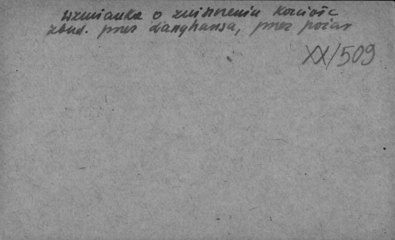 wzmianka o zniszczeniu kościoła
zbud. przez Langhansa, przez pożar
XX/509